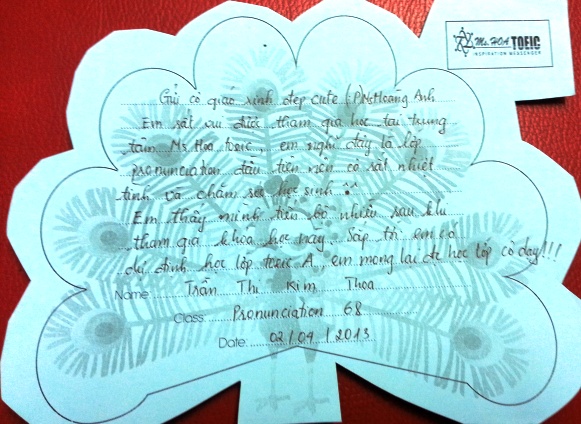 Ms. HOA TOEIC
INSPIRATION MESSENGER
Gửi cô giáo xinh đẹp cute (P.N.Hoàng Anh
Em rất vui được tham gia học tại trung
tâm Ms Hoa toeic, em nghĩ đây là lớp
pronunciation đầu tiên nên cô rất nhiệt
tình và chăm sóc học sinh ^^
Em thấy mình tiến bộ nhiều sau khi
tham gia khóa học này. Sắp tới em có
dự định học lớp toeic A, em mong lại đc học lớp cô dạy!!!
Name: Trần Thị Kim Thoa
Class: Pronunciation 68
Date: 02/04/2013